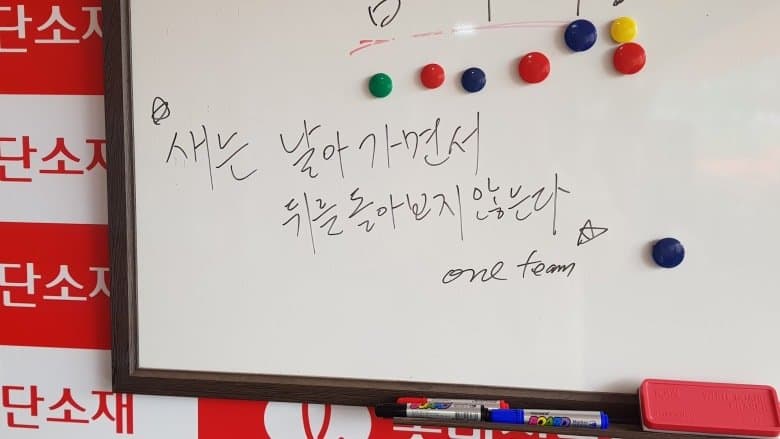 단소재
단소재
단소재
단소재
새는 날아가면서
뒤를 돌아보지 않는다
one team
BOARD
BOARD